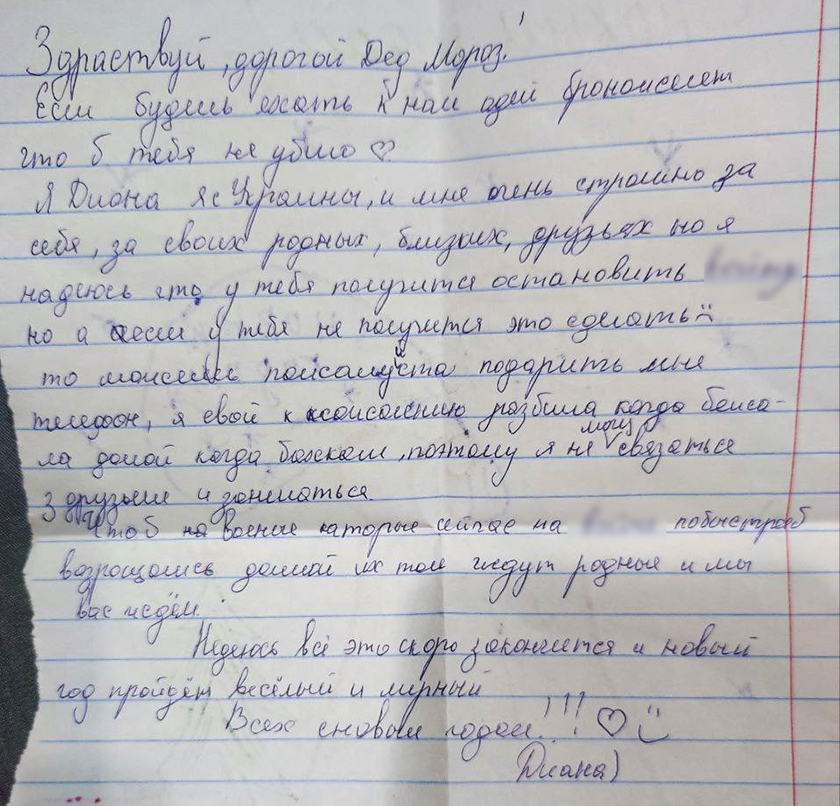 Здраствуй, дорогой Дед Мороз!
Если будешь ехать к нам одей бронижелет
что б тебя не убило ♡
Я Диана я с Украины, и мне очень страшно за
себя, за своих родных, близких, друзьях но я
надеюсь что у тебя получится остановить
но а если у тебя не получится это сделать
то можеш пожалуйста подарить мне
телефон, я свой к сожелению разбила когда бежа-
ла домой когда бахкали, поэтому я не могу связаться
з друзьями и заниматься
Чтоб военые каторые сейчас на побыстреб
возрощались домой их там ждут родные и мы
вас ждём.
Надеюсь всё это скоро закончится и новый
год пройдёт весёлый и мирный
Всех сновым годом!!!! ♡
Диана)